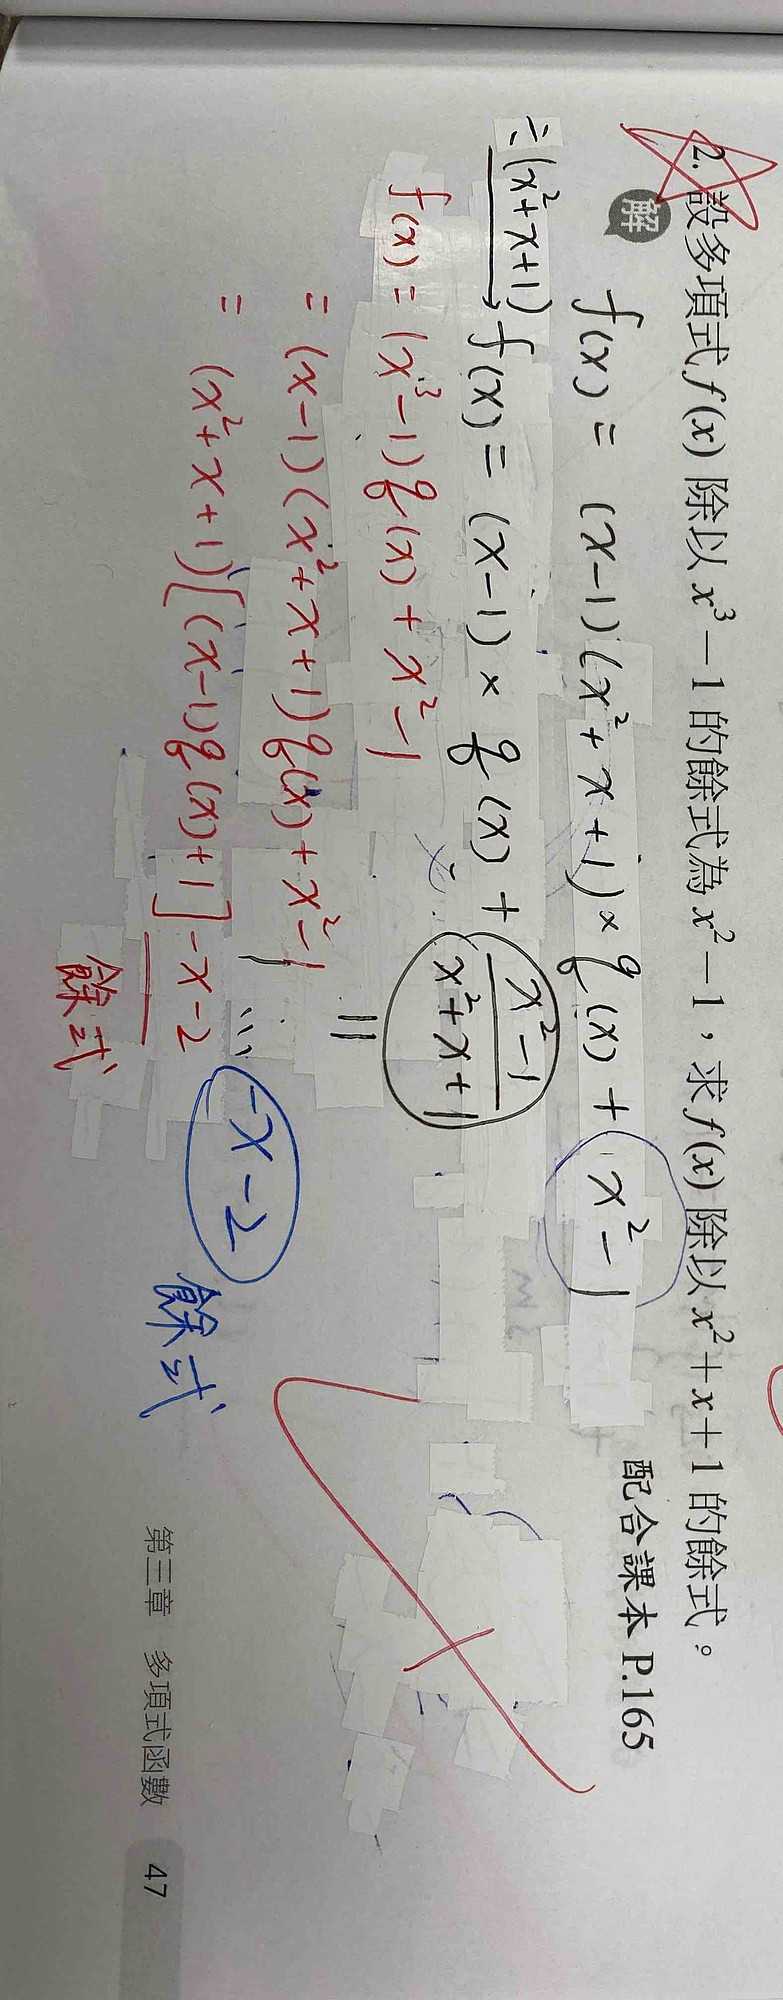 2. 設多項式 f(x) 除以 x³-1 的餘式為 x²-1，求 f(x) 除以 x²+x+1 的餘式。
配合課本 P.165
解
f(x) = (x-1)(x²+x+1)×q(x) + x²-1
÷(x²+x+1) → f(x) = (x-1)×q(x) + (x²-1)/(x²+x+1)
f(x) = (x³-1)q(x) + x²-1
= (x-1)(x²+x+1)q(x) + x²-1
= (x²+x+1)[(x-1)q(x)+1] -x-2
餘式
=
1 … -x-2 餘式
第三章 多項式函數 47